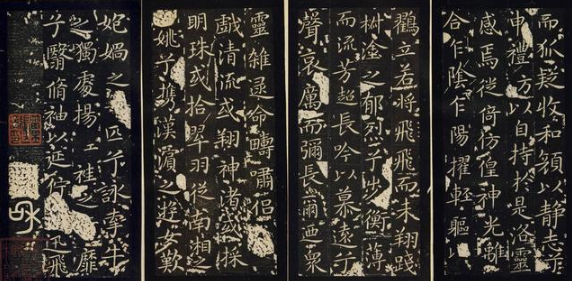 而狐疑收和顏以静志兮
申禮防以自持於是洛靈
感焉徙倚仿偟神光離
合乍陰乍陽擢輕軀以
鶴立若將飛飛而未翔踐
椒塗之郁烈兮步衡薄
而流芳超長吟以慕遠兮
聲哀厲而彌長爾迺衆
靈雜遝命疇嘯侣
戲清流或翔神渚或採
明珠或拾翠羽從南湘之
姚兮携漢濵之遊女歎
妃媧之匹兮詠牽牛
之獨處揚袿之靡
兮翳脩袖以延佇迅飛